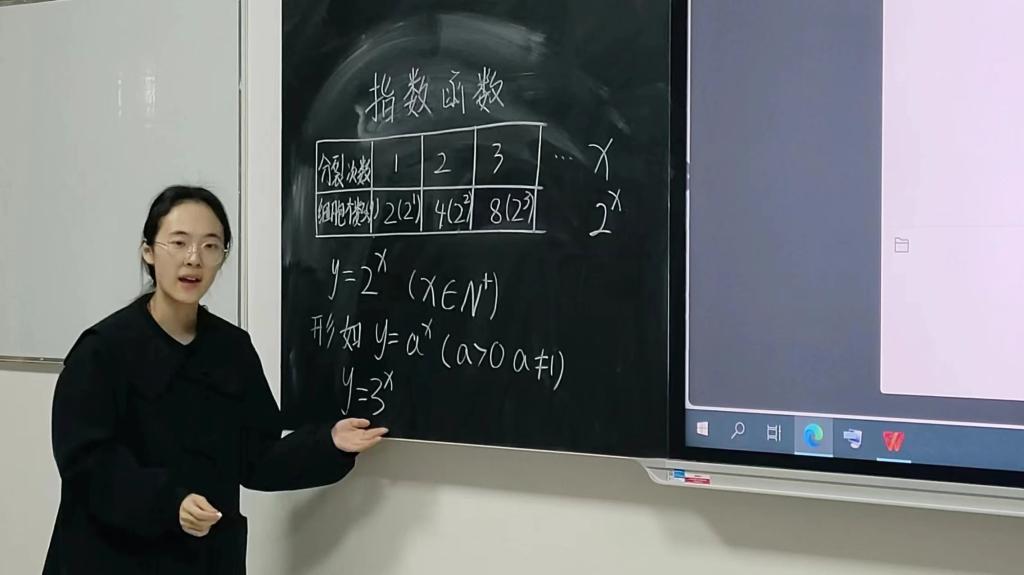 指数函数
分裂次数 1 2 3 … x
细胞个数 2(2¹) 4(2²) 8(2³) 2ˣ
y=2ˣ (x∈N⁺)
形如 y=aˣ (a>0 a≠1)
y=3ˣ